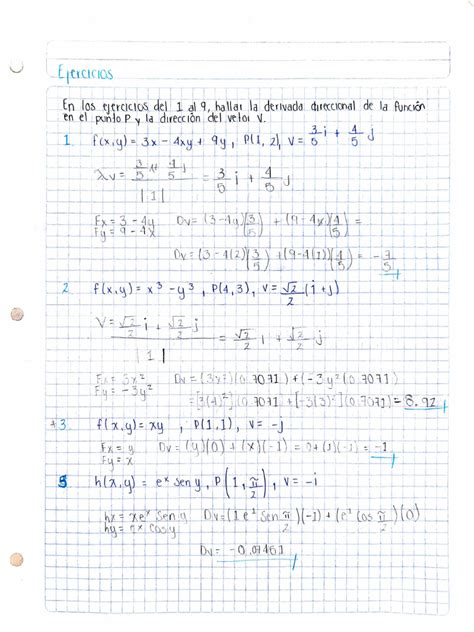 Ejercicios
En los ejercicios del 1 al 9, hallar la derivada direccional de la función
en el punto P y la dirección del vetor V.
1. f(x,y) = 3x - 4xy + 9y , P(1, 2), V = 3/5 i + 4/5 j
λv = 3/5 i + 4/5 j / |1| = 3/5 i + 4/5 j
Fx = 3 - 4y
Fy = 9 - 4x
Dv = (3 - 4y)(3/5) + (9 - 4x)(4/5) =
Dv = (3 - 4(2))(3/5) + (9 - 4(1))(4/5) = - 7/5
2. f(x,y) = x³ - y³ , P(4,3), V = √2/2 (i+j)
V = √2/2 i + √2/2 j / |1| = √2/2 i + √2/2 j
Fx = 3x²
Fy = -3y²
Dv = (3x²)(0.7071) + (-3y²(0.7071)
= [3(4)²](0.7071) + [-3(3)²](0.7071) = 8.92
3. f(x,y) = xy , P(1,1), V = -j
Fx = y
Fy = x
Dv = (y)(0) + (x)(-1) = 0 + (1)(-1) = -1
5. h(x,y) = eˣ sen y, P(1, π/2), V = -i
hx = xeˣ Sen y
hy = eˣ Cos y
Dv = (1 e¹ Sen π/2)(-1) + (e¹ Cos π/2)(0)
Dv = -0.07461